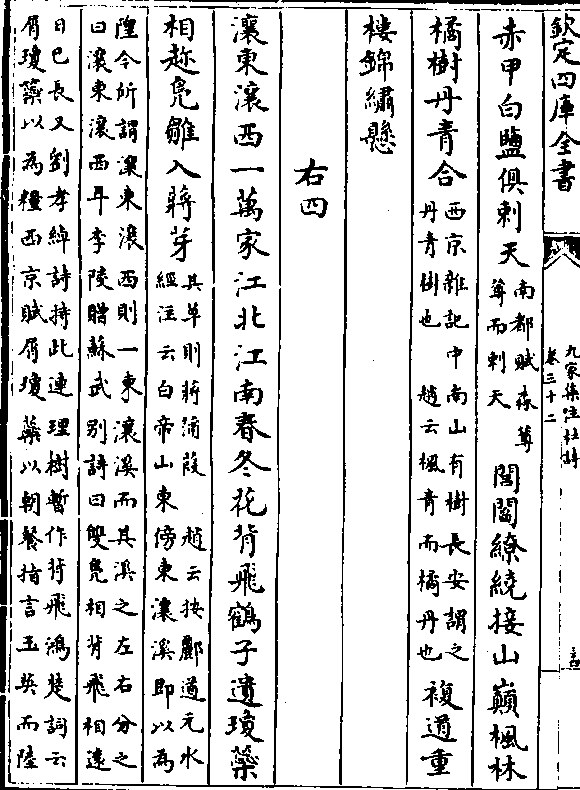 欽定四庫全書
九家集注杜詩
卷三十二
赤甲白鹽俱刺天
南都賦森蓴
蓴而刺天
閭閻繚繞接山巔楓林
橘樹丹青合
西京雜記中南山有樹長安謂之
丹青樹也 趙云楓青而橘丹也
複道重
樓錦繡懸
右四
瀼東瀼西一萬家江北江南春冬花背飛鶴子遺瓊蘂
相趂鳬雛入蔣芽
其草則蔣蒲葭 趙云按酈道元水
經注云白帝山東傍東瀼溪即以為
隍今所謂瀼東瀼西則一東瀼溪而其溪之左右分之
曰瀼東瀼西耳李陵贈蘇武别詩曰雙鳬相背飛相逺
日已長又劉孝綽詩持此連理樹暫作背飛鴻楚詞云
屑瓊蘂以為糧西京賦屑瓊蘂以朝餐指言玉英而陸